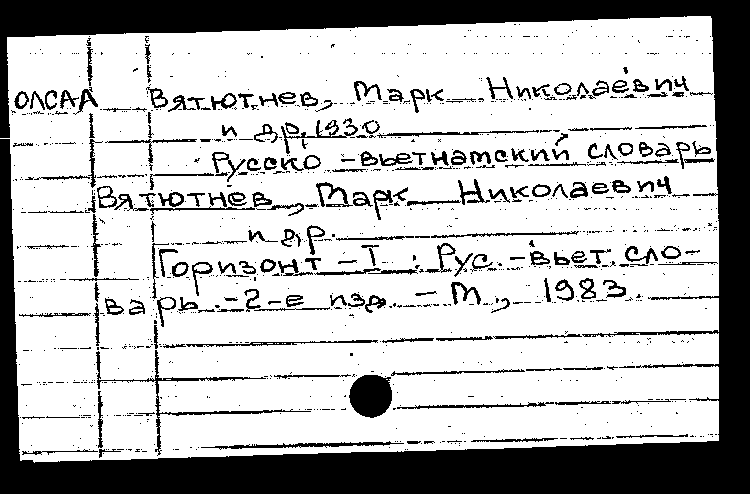 ОЛСАА Вятютнев, Марк Николаевич
и др, 1930
Русско-вьетнатский словарь
Вятютнев, Марк Николаевич
и др.
Горизонт-I : Рус.-вьет. сло-
варь.-2-е изд. - М., 1983.